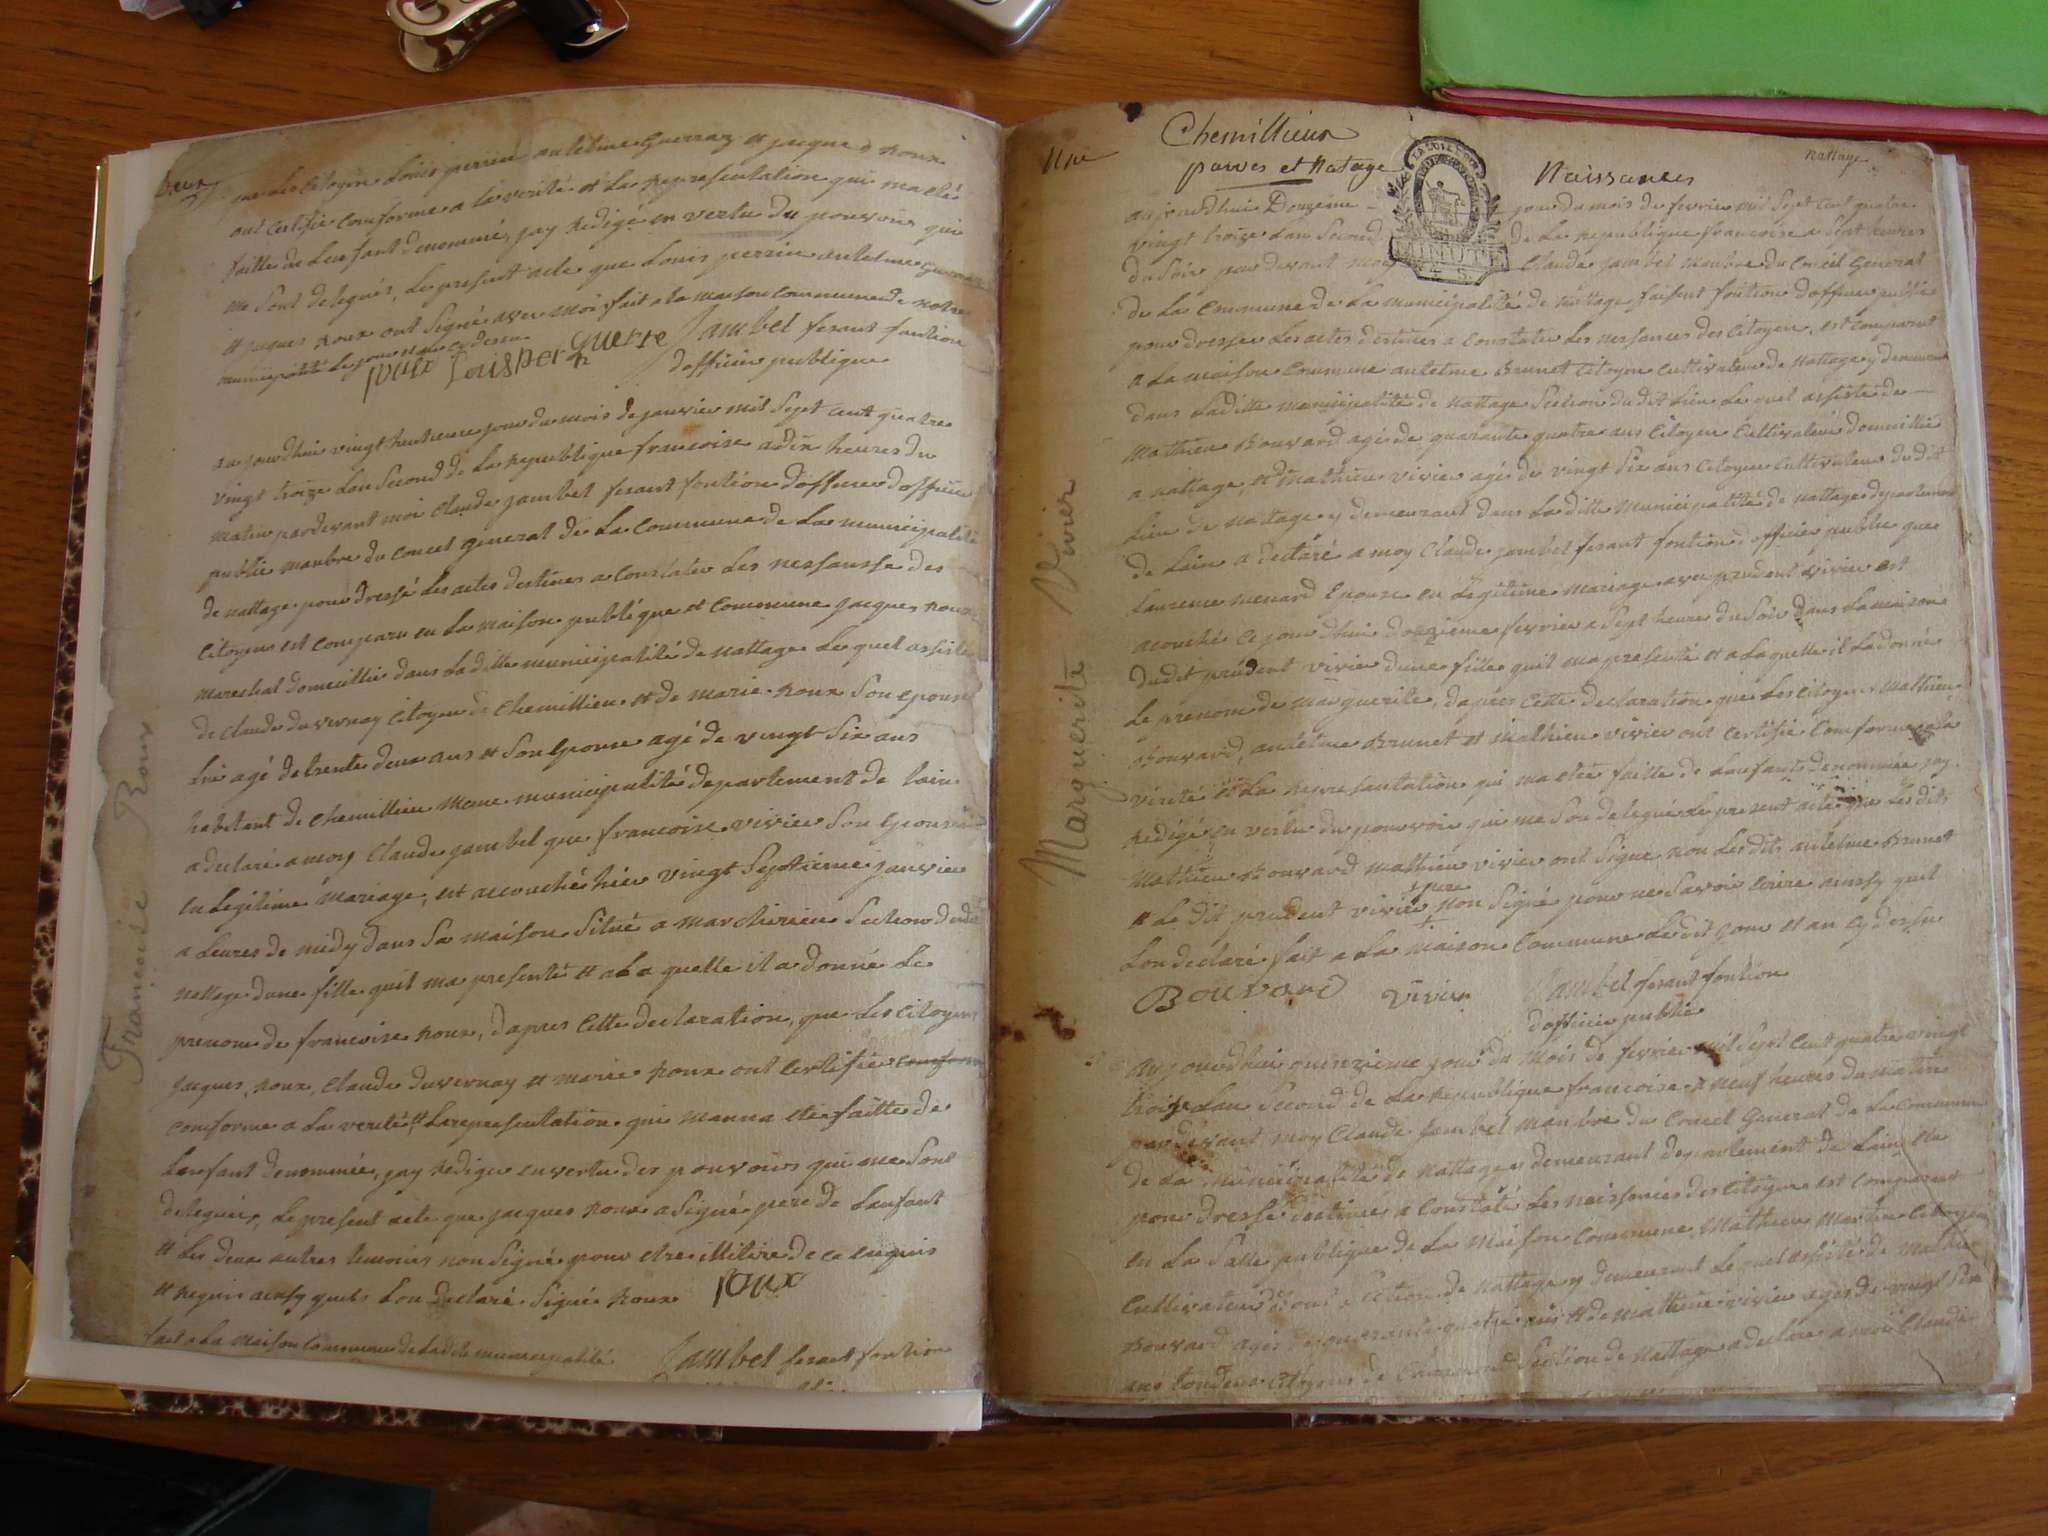 Deux
par les Citoyen Louis perrin antelme Guerraz et jacque d Roux
ont certifié Comforme a la verité et La Representation qui ma eté
faitte de Lenfant denommé, jay Redigé en vertu du pouvoir qui
me sont delegués, Le present acte que Louis perrin antelme
et jaques Roux ont Signé avec moi fait a la maison Commune de notre
municipalité Le jour et an cy dessu
roux Louisper Jambel feraut fontion
dofficier publique
aujourdhui vingt huitieme jour du mois de janvier mil Sept cent quatre
vingt troize Lan Second de La Republique francoise a dix heures du
matin pardevant moi Claude jambel feraut fontion doffice dofficier
public manbre du Concel general de La Commune de La municipalité
de nattage pour dressé Les actes destines a Constater Les nessansse des
Citoyens est comparu en La maison publique et Commune jacques Roux
mareschal domicillie dans Laditte municipalité de nattage Lequel assisté
de Claude duvernay Citoyen de Chemillieu et de marie Roux Son epouse
Lui agé de trente deux ans et Son Epouse agé de vingt Six ans
habitant de Chemillieu meme municipalité departement de Lain
a declaré a moy Claude jambel que francoise vivier Son Epouse
en Legitime mariage, est accouché hier vingt Septieme janvier
a heures de midy dans Sa maison Situé a Section dudit
nattage dune fille quil ma presenté et a La quelle il a donné Le
prenom de francoise Roux, dapres Cette declaration, que Les Citoyens
jacques, Roux, Claude duvernay et marie Roux ont Certifié comforme
Comforme a La verité, et La representation qui manna ete faitte de
Lenfant denommée, jay Redigee en vertu des pouvoirs qui me Sont
delegués, Le present acte que jacques Roux a Signé pere de Lenfant
et Les deux autres temoins non Signé pour etre illitire de ce enquis
et Requis ainsy quils Lon declaré Signé Roux roux
fait a La maison Commune de Ladite municipalité Jambel feraut fontion
Francoise Roux
Une
Chemillieux
parves et Natage
Naissances
nattage
aujourdhui Douzieme jour du mois de fevrier mil Sept Cent quatre
vingt troize Lan Second de La Republique francoise a Sept heures
du Soir par devant moy Claude jambel manbre du Conceil General
de La Commune de La municipalité de nattage faisent fontion dofficier public
pour dresser Les actes destines a Constater Les nessances des Citoyen, est Comparut
a La maison Commune antelme Brunet Citoyen Cultivateur de Nattage y demeurant
dans Laditte municipalité de Nattage Section du dit Lieu Le quel assisté de
Mathieu Bouvard agé de quarante quatre ans Citoyen Cultivateur domicillié
a nattage, et Mathieu vivier agé de vingt Six ans Citoyen Cultivateur du dit
Lieu de Nattage y demeurant dans La ditte Municipalité de nattage departement
de Lain a declaré a moy Claude jambel feraut fontion dofficier public que
Laurence menard Epouse en Legitime Mariage avec prudent vivier est
acouché Cejour dhui douzieme fevrier a Sept heure du Soir dans La maison
dudit prudent vivier dune fille quil ma presenté et a Laquelle il La donné
Le prenom de marguerite, dapres Cette declaration que Les Citoyens Mathieu
Bouvard, antelme Brunet et Mathieu vivier ont Certifié Comforme a La
vérité et La Representation qui ma eté faitte de Lenfant denommée jay
Redigé en vertu du pouvoir qui me Son delegué Le present acte que Les dits
Mathieu Bouvard Mathieu vivier ont Signe non Les dits antelme Brunet
et Le dit prudent vivier pere non Signé pour ne Savoir Ecrire ainssy quil
Lon declaré fait a La maison Commune Le dit jour et an cy dessu
Bouvard vivier Jambel feraut fontion
dofficier public
aujourdhui quinzieme jour du mois de fevrier mil Sept Cent quatre vingt
troize Lan Second de La Republique francoise a neuf heures du matin
par devant moy Claude Jambel manbre du Concel General de La Commune
de La Municipalité de Nattage y demeurant departement de Lain
pour dressé destines a Constaté Les naissances des Citoyen est Comparut
en La Salle publique de La Maison Commune Mathieu Martin Citoyen
Cultivateur Section de Nattage y demeurant Le quel assisté de Mathieu
Bouvard agés de quarante quatre ans et de Mathieu vivier agés de vingt Six
ans tou deux Citoyens de Section de Nattage a declaré a moi Claude
Marguerite Vivier